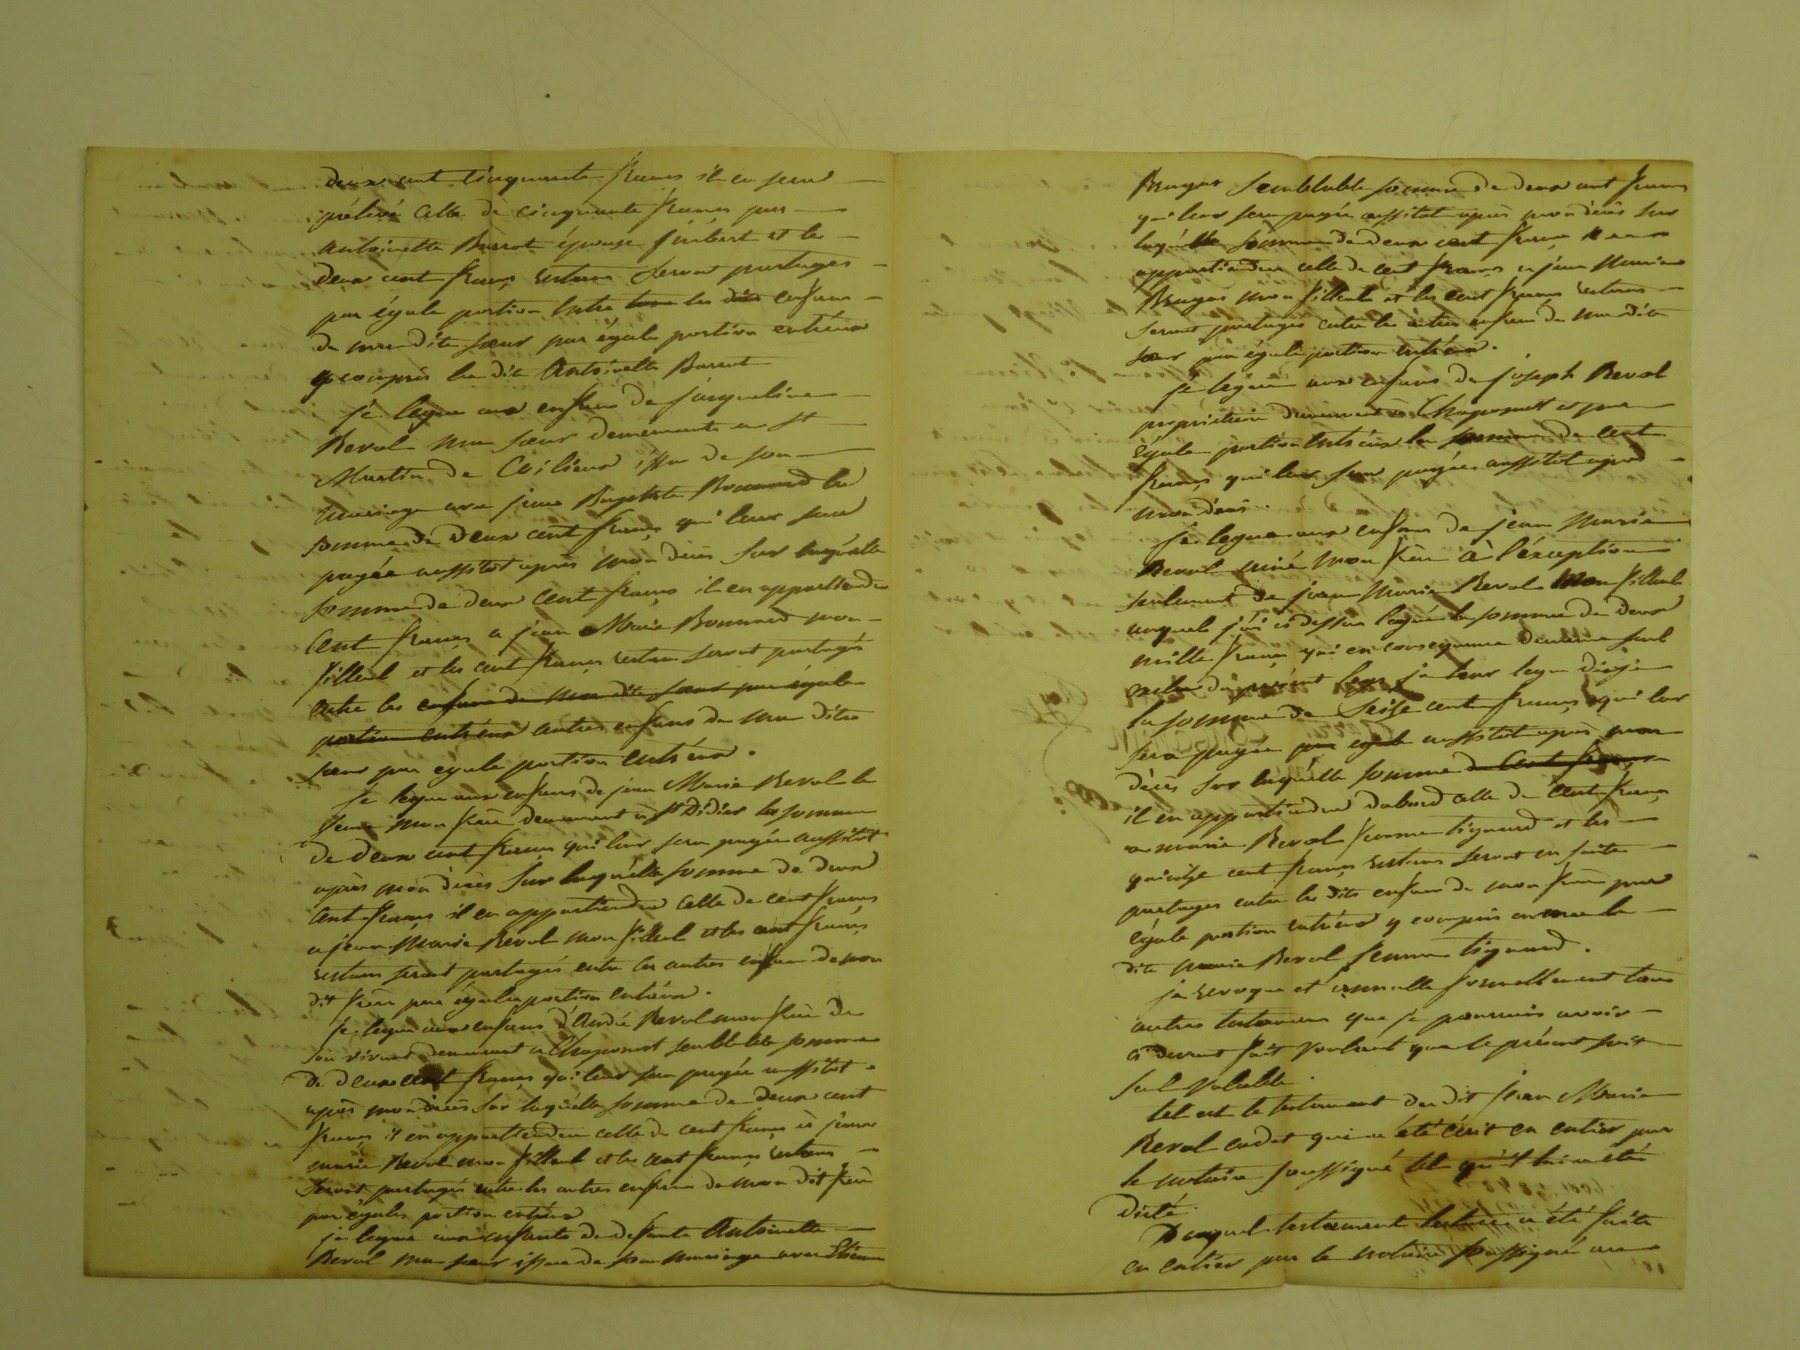 deux cent cinquante francs il en sera
prélevé celle de cinquante francs par
antoinette Barrot épouse Jimbert et les
deux cent francs restans seront partages
par égale portion entre tous les dits enfans
de ma dite sœur par égale portion entr'eux
y compris la dite Antoinette Barrot
Je legue aux enfans de jacqueline
Revol ma sœur demeurante a St
Martin de Coilieux issu de son
mariage avec jean Baptiste Bonnard la
somme de deux cent francs qui leur sera
payée aussitot après mon décès sur laquelle
somme de deux cent francs il en appartiendra
cent francs a jean Marie Bonnard mon
filleul et les cent francs restans seront partagés
entre les enfans de ma dite sœur par égale
portion entr'eux autres enfans de ma dite
sœur par égale portion entr'eux.
Je legue aux enfans de jean Marie Revol le
jeune mon frère demeurant à St Didier la somme
de deux cent francs qui leur sera payée aussitot
après mon décès sur laquelle somme de deux
cent francs il en appartiendra celle de cent francs
a jean Marie Revol mon filleul et les cent francs
restans seront partagés entre les autres enfans de mon
dit frère par égale portion entr'eux.
Je legue aux enfans d'André Revol mon frère de
son vivant demeurant a Chaponost semblable somme
de deux cent francs qui leur sera payée aussitot
après mon décès sur laquelle somme de deux cent
francs il en appartiendra celle de cent francs à jean
marie Revol mon filleul et les cent francs restans
seront partagés entre les autres enfans de mon dit frère
par égales portion entr'eux
je legue aux enfants de defunte Antoinette
Revol ma sœur issus de son mariage avec Etienne
Bruyas semblable somme de deux cent francs
qui leur sera payée aussitot après mon décès sur
laquelle somme de deux cent francs il en
appartiendra celle de cent francs a jean Marie
Bruyas mon filleul et les cent francs restans
seront partagés entre les autres enfans de ma dite
sœur par égale portion entr'eux.
Je legue aux enfans de joseph Revol
propriétaire demeurant à Chaponost et par
égale portion entr'eux la somme de cent
francs qui leur sera payée aussitot après
mon décès.
Je legue aux enfans de jean Marie
Revol ainé mon frère à l'éxception
seulement de jean Marie Revol mon filleul
auquel j'ai ci dessus légué la somme de deux
mille francs qui en consequence demeure seul
exclu du présent legs, je leur legue dis-je
la somme de seize cent francs qui leur
sera payée par egale aussitot après mon
décès sur laquelle somme de cent francs
il en appartiendra d'abord celle de cent francs
a marie Revol femme tignard et les
quinze cent francs restans seront en suite
partages entre les dits enfans de mon frère par
égale portion entr'eux y compris encore la
dite Marie Revol femme tignard.
je revoque et annulle formellement tous
autres testamens que je pourrais avoir
ci devant fait voulant que le présent soit
seul valable.
tel est le testament du dit jean Marie
Revol cadet qui a été écrit en entier par
le notaire soussigné tel qu'il lui a été
dicté.
Duquel testament lecture a été faite
en entier par le notaire soussigné au